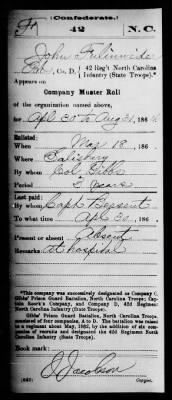 (Confederate.)
42 N.C.
John Fulenwider
Pvt, Co. D, 42 Reg't North Carolina
Infantry (State Troops).*
Appears on
Company Muster Roll
of the organization named above,
for Apl 30 to Aug 31, 186
Enlisted:
When Mar 18, 186
Where Salisbury
By whom Col Gibbs
Period 2 years
Last paid:
By whom Capt Bessent
To what time Apr 30, 186
Present or absent Absent
Remarks: At hospital
*This company was successively designated as Company C,
Gibbs' Prison Guard Battalion, North Carolina Troops; Cap-
tain Company, and Company D, 42d Regi-
ment North Carolina Infantry (State Troops).
Gibbs' Prison Guard Battalion, North Carolina Troops,
consisted of four companies, A to D. The battalion was raised
to a regiment about May, 1862, by the addition of six com-
panies of recruits and designated the 42d Regiment North
Carolina Infantry (State Troops).
Book mark:
J Jacobson
(642) Copyist.